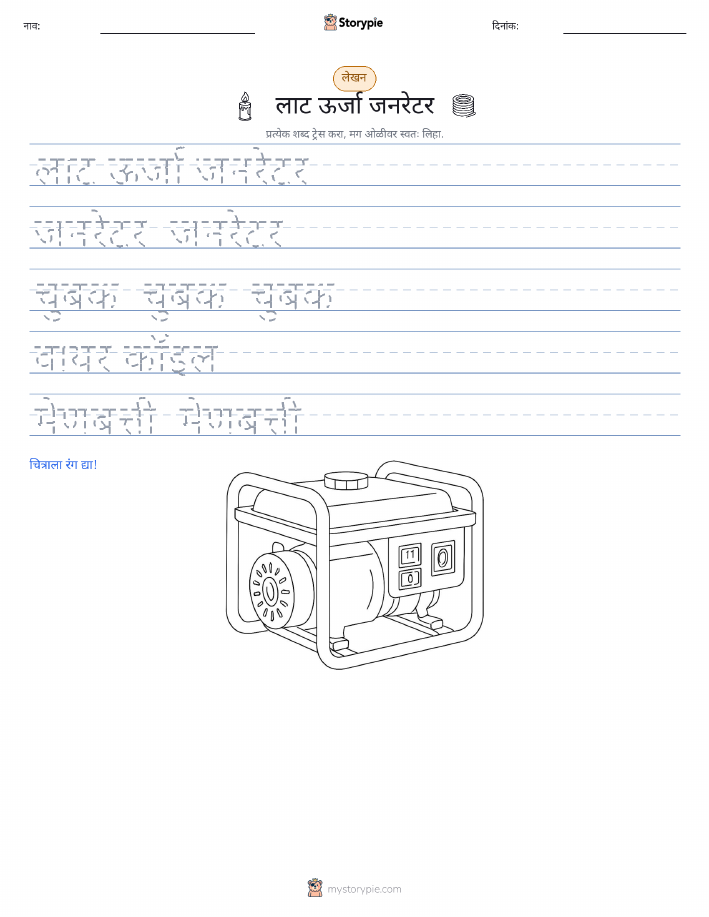 नाव:
Storypie
दिनांक:
लेखन
लाट ऊर्जा जनरेटर
प्रत्येक शब्द ट्रेस करा, मग ओळीवर स्वतः लिहा.
लाट ऊर्जा जनरेटर
जनरेटर जनरेटर
चुंबक चुंबक चुंबक
वायर कॉइल
मेणबत्ती मेणबत्ती
चित्राला रंग द्या!
11
0
0
mystorypie.com